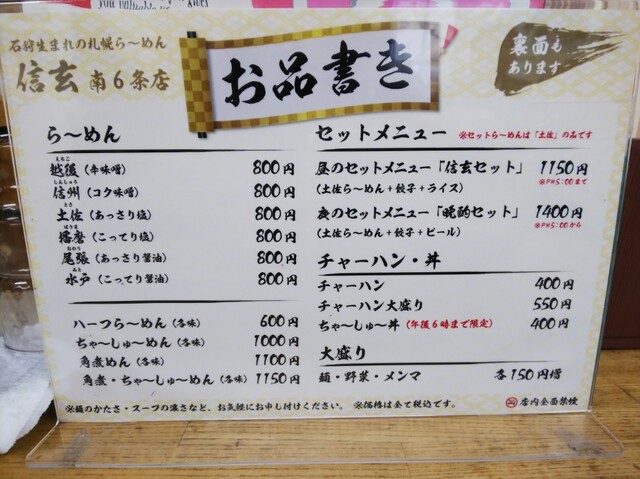 石狩生まれの札幌ら〜めん
信玄 南6条店
お品書き
裏面も
あります
ら〜めん
えちご
越後（辛味噌） 800円
しんしゅう
信州（コク味噌） 800円
とさ
土佐（あっさり塩） 800円
はりま
播磨（こってり塩） 800円
おわり
尾張（あっさり醤油） 800円
みと
水戸（こってり醤油） 800円
ハーフら〜めん（各味） 600円
ちゃ〜しゅ〜めん（各味） 1000円
角煮めん（各味） 1100円
角煮・ちゃ〜しゅ〜めん（各味） 1150円
セットメニュー ※セットら〜めんは「土佐」のみです
昼のセットメニュー「信玄セット」 1150円
（土佐ら〜めん＋餃子＋ライス） ※PM5:00まで
夜のセットメニュー「晩酌セット」 1400円
（土佐ら〜めん＋餃子＋ビール） ※PM5:00から
チャーハン・丼
チャーハン 400円
チャーハン大盛り 550円
ちゃ〜しゅ〜丼（午後6時まで限定） 400円
大盛り
麺・野菜・メンマ 各150円増
※麺のかたさ・スープの濃さなど、お気軽にお申し付けください。 ※価格は全て税込です。
店内全面禁煙